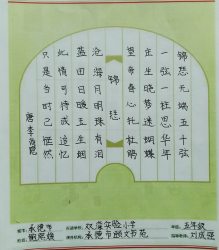 锦瑟无端五十弦
一弦一柱思华年
庄生晓梦迷蝴蝶
望帝春心托杜鹃
锦瑟
沧海月明珠有泪
蓝田日暖玉生烟
此情可待成追忆
只是当时已惘然
唐 李商隐
承德市 双滦实验小学 五年级
姓名: 承德市 书苑